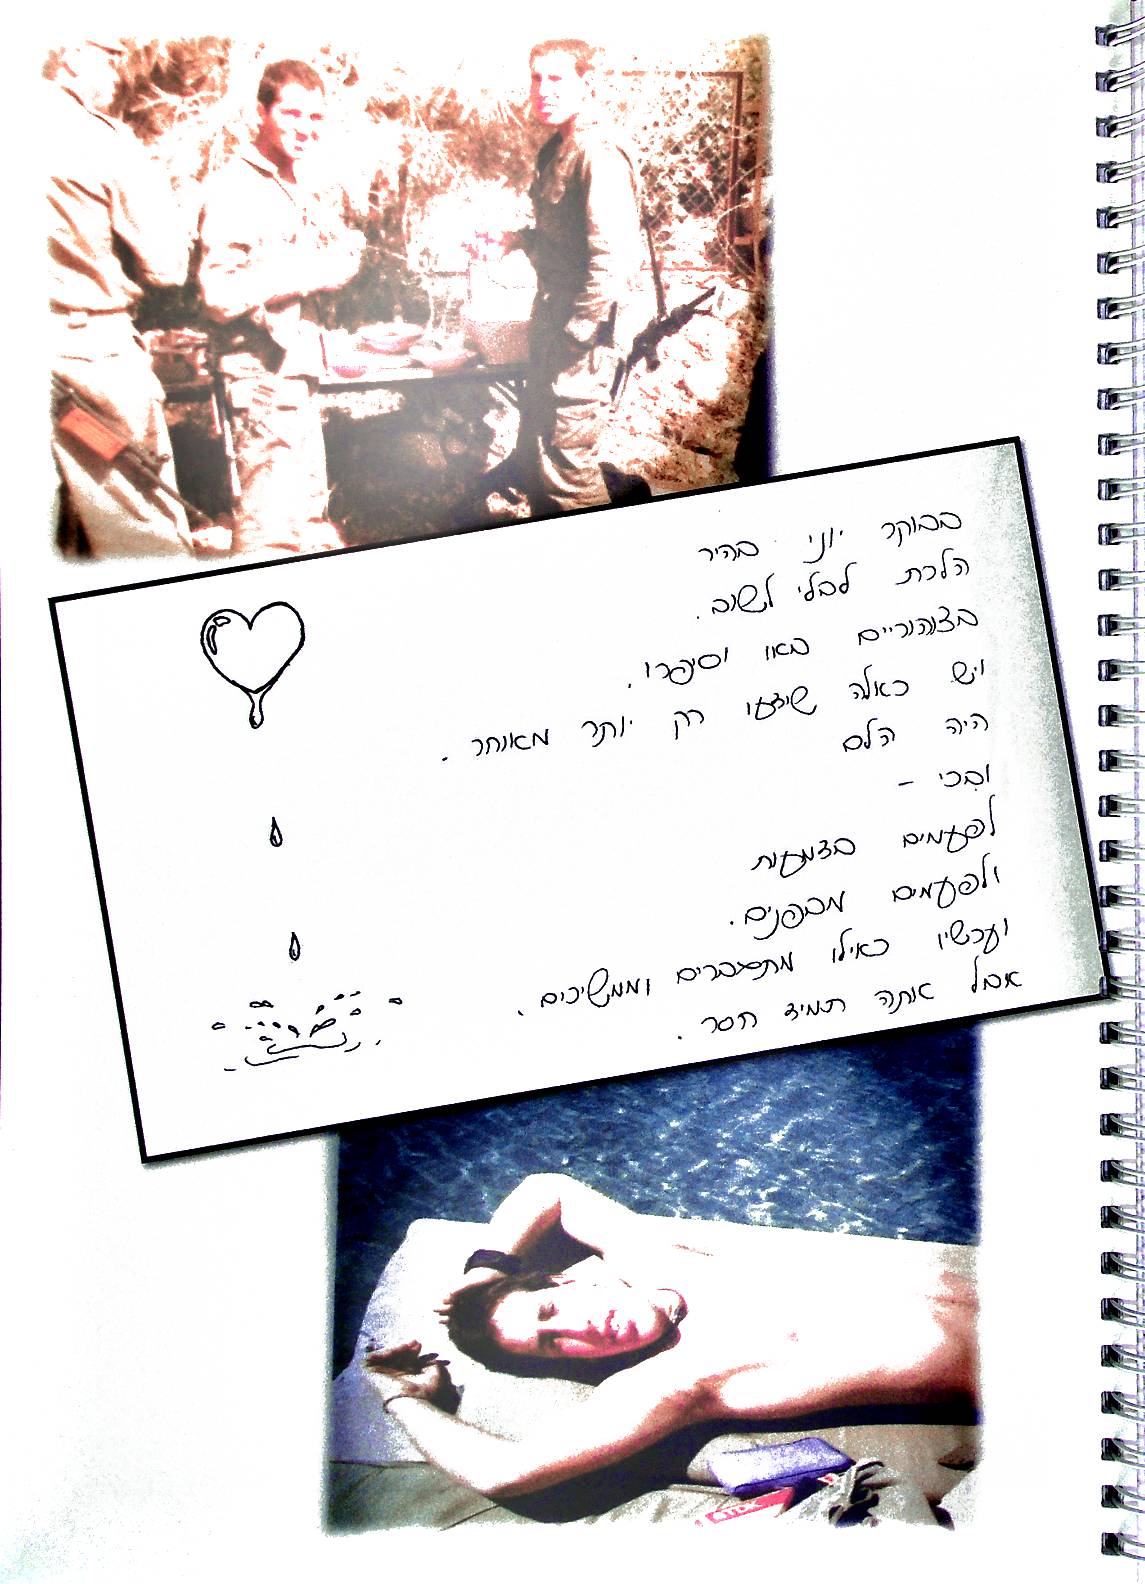 בבוקר יוני בהיר
הלכת לבלי לשוב.
בצוהוריים באו וסיפרו.
ויש כאלה שידעו רק יותר מאוחר.
היה הלם
ובכי -
לפעמים בדמעות
ולפעמים מבפנים.
ועכשיו כאילו מתגברים וממשיכים.
אבל אותה תמיד חסר.
TDK